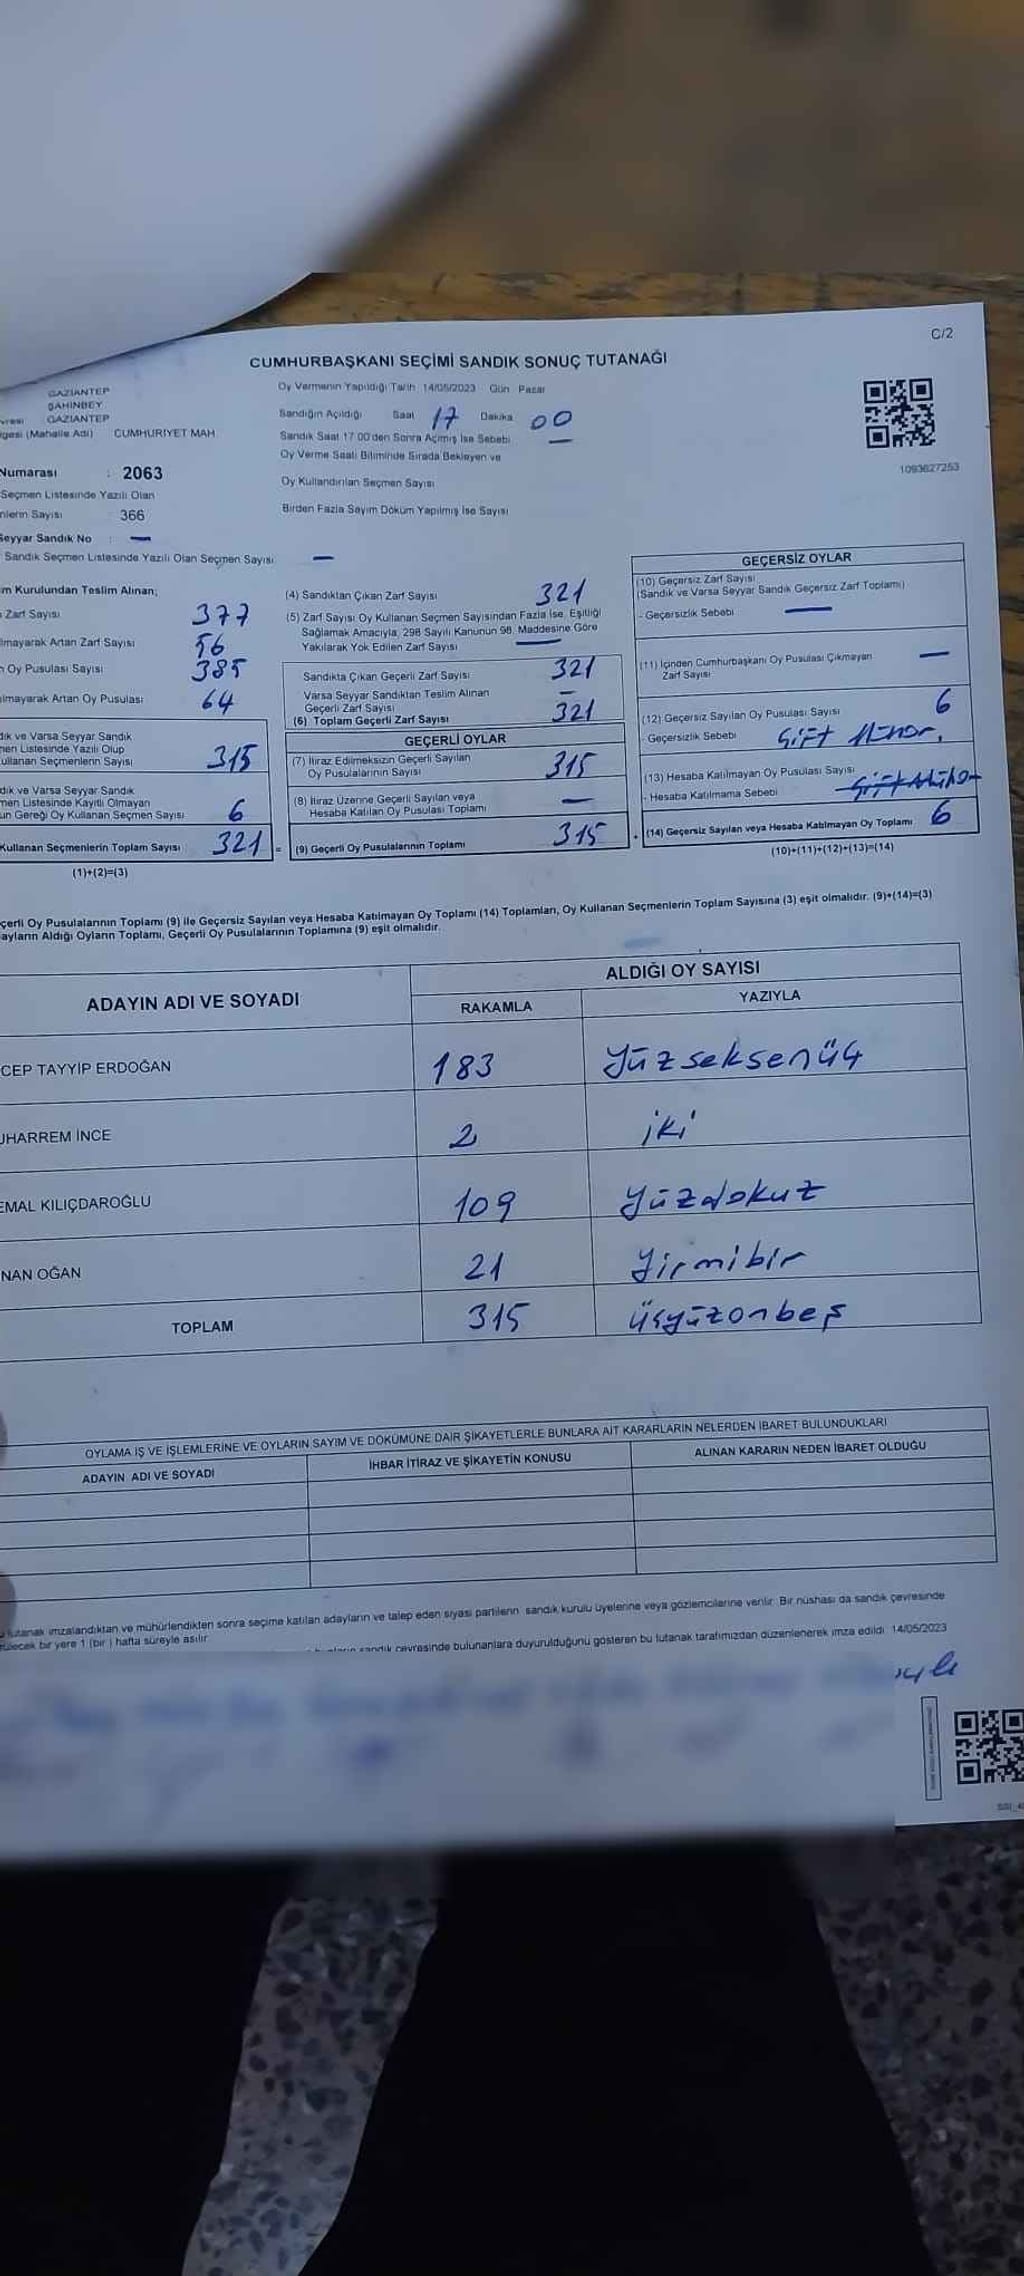 C/2
CUMHURBAŞKANI SEÇİMİ SANDIK SONUÇ TUTANAĞI
GAZİANTEP
ŞAHİNBEY
GAZİANTEP
(Mahalle Adı) CUMHURİYET MAH.
Oy Vermenin Yapıldığı Tarih 14/05/2023 Gün Pazar
Sandığın Açıldığı Saat 17 Dakika 00
Sandık Saat 17:00'den Sonra Açılmış İse Sebebi —
Oy Verme Saati Bitiminde Sırada Bekleyen ve
Oy Kullandırılan Seçmen Sayısı
Birden Fazla Sayım Döküm Yapılmış İse Sayısı
1093627253
Numarası : 2063
Seçmen Listesinde Yazılı Olan
Sayısı 366
Seyyar Sandık No : —
Sandık Seçmen Listesinde Yazılı Olan Seçmen Sayısı —
Kurulundan Teslim Alınan;
Zarf Sayısı 377
Artan Zarf Sayısı 56
Oy Pusulası Sayısı 385
Artan Oy Pusulası 64
ve Varsa Seyyar Sandık
Listesinde Yazılı Olup
Seçmenlerin Sayısı 315
ve Varsa Seyyar Sandık
Listesinde Kayıtlı Olmayan
Gereği Oy Kullanan Seçmen Sayısı 6
Kullanan Seçmenlerin Toplam Sayısı 321 =
(1)+(2)=(3)
(4) Sandıktan Çıkan Zarf Sayısı 321
(5) Zarf Sayısı Oy Kullanan Seçmen Sayısından Fazla İse, Eşitliği
Sağlamak Amacıyla, 298 Sayılı Kanunun 98. Maddesine Göre
Yakılarak Yok Edilen Zarf Sayısı —
Sandıkta Çıkan Geçerli Zarf Sayısı 321
Varsa Seyyar Sandıktan Teslim Alınan
Geçerli Zarf Sayısı —
(6) Toplam Geçerli Zarf Sayısı 321
GEÇERLİ OYLAR
(7) İtiraz Edilmeksizin Geçerli Sayılan
Oy Pusulalarının Sayısı 315
(8) İtiraz Üzerine Geçerli Sayılan veya
Hesaba Katılan Oy Pusulası Toplamı —
(9) Geçerli Oy Pusulalarının Toplamı 315
GEÇERSİZ OYLAR
(10) Geçersiz Zarf Sayısı
(Sandık ve Varsa Seyyar Sandık Geçersiz Zarf Toplamı)
- Geçersizlik Sebebi —
(11) İçinden Cumhurbaşkanı Oy Pusulası Çıkmayan —
Zarf Sayısı
(12) Geçersiz Sayılan Oy Pusulası Sayısı 6
- Geçersizlik Sebebi Çift
(13) Hesaba Katılmayan Oy Pusulası Sayısı
- Hesaba Katılmama Sebebi
(14) Geçersiz Sayılan veya Hesaba Katılmayan Oy Toplamı 6
(10)+(11)+(12)+(13)=(14)
Oy Pusulalarının Toplamı (9) ile Geçersiz Sayılan veya Hesaba Katılmayan Oy Toplamı (14) Toplamları, Oy Kullanan Seçmenlerin Toplam Sayısına (3) eşit olmalıdır. (9)+(14)=(3)
Aldığı Oyların Toplamı, Geçerli Oy Pusulalarının Toplamına (9) eşit olmalıdır.
ADAYIN ADI VE SOYADI ALDIĞI OY SAYISI
RAKAMLA YAZIYLA
CEP TAYYİP ERDOĞAN 183 Yüzseksenüç
UHARREM İNCE 2 iki
EMAL KILIÇDAROĞLU 109 yüzdokuz
NAN OĞAN 21 yirmibir
TOPLAM 315 üçyüzonbeş
OYLAMA İŞ VE İŞLEMLERİNE VE OYLARIN SAYIM VE DÖKÜMÜNE DAİR ŞİKAYETLERLE BUNLARA AİT KARARLARIN NELERDEN İBARET BULUNDUKLARI
ADAYIN ADI VE SOYADI İHBAR İTİRAZ VE ŞİKAYETİN KONUSU ALINAN KARARIN NEDEN İBARET OLDUĞU
tutanak imzalandıktan ve mühürlendikten sonra seçime katılan adayların ve talep eden siyasi partilerin sandık kurulu üyelerine veya gözlemcilerine verilir. Bir nüshası da sandık çevresinde
bir yere 1 (bir) hafta süreyle asılır.
sandık çevresinde bulunanlara duyurulduğunu gösteren bu tutanak tarafımızdan düzenlenerek imza edildi. 14/05/2023